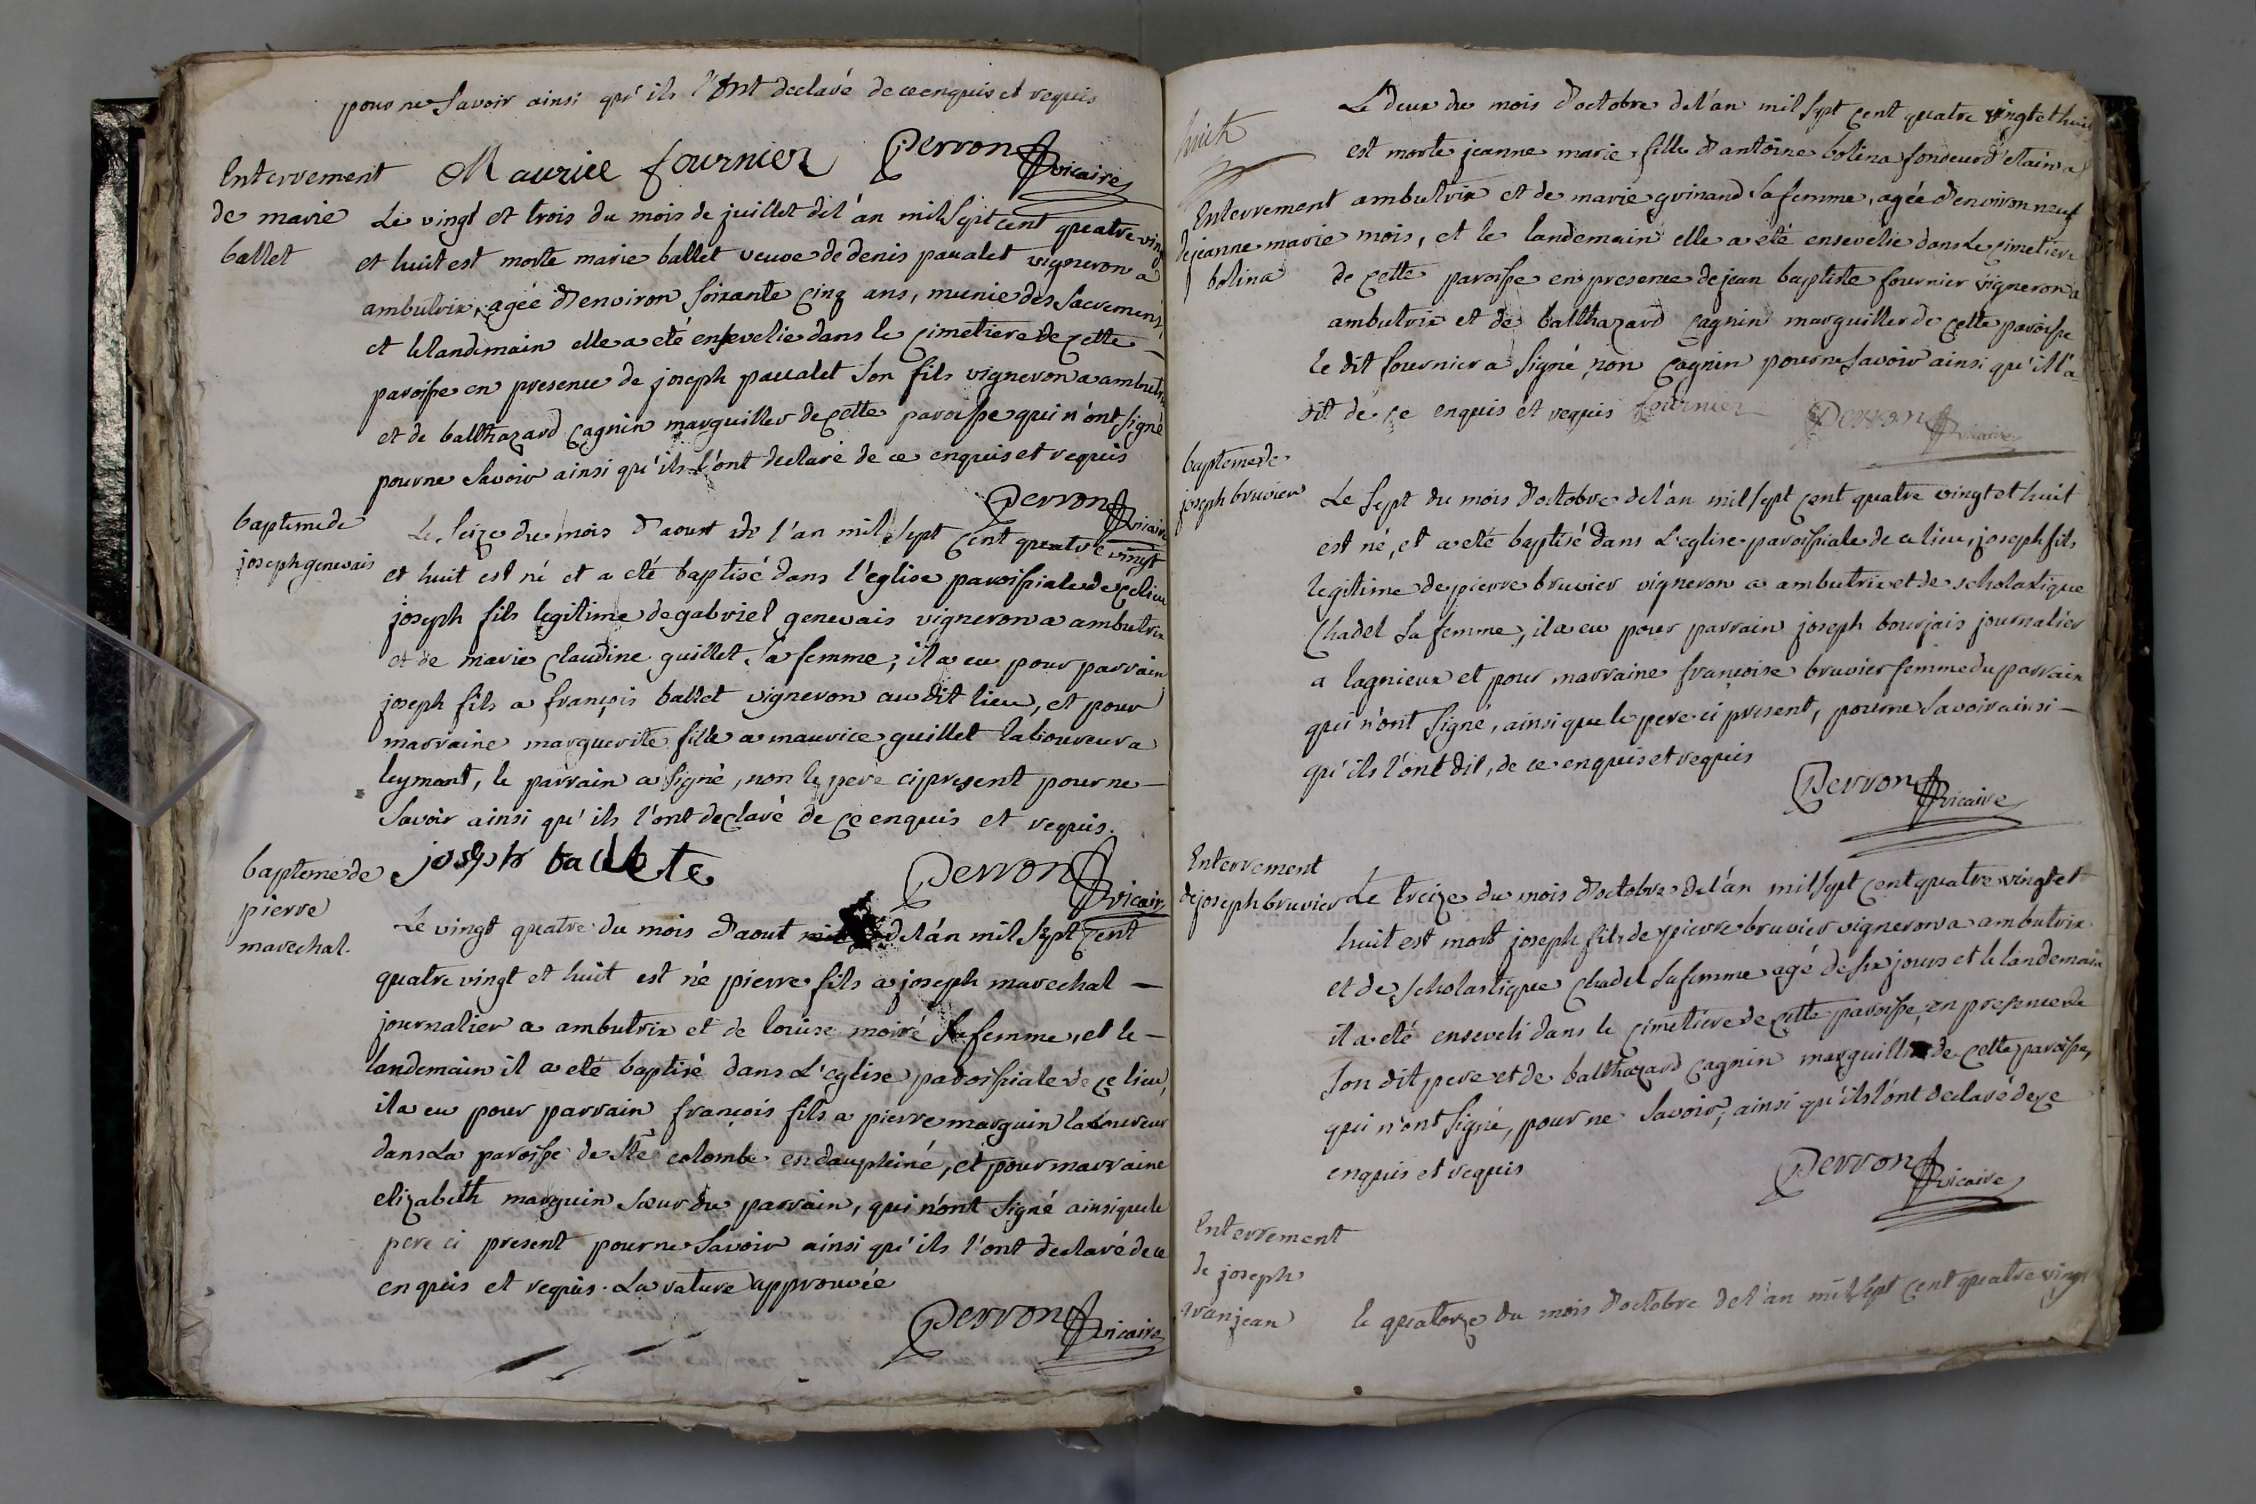 pour ne savoir ainsi qu'ils l'ont declaré de ce enquis et requis
Maurice fournier Perron vicaire
Enterrement
de marie
ballet
Le vingt et trois du mois de juillet de l'an mil sept cent quatre vingt
et huit est morte marie ballet veuve de denis paualet vigneron a
ambutrix, agée d'environ soixante cinq ans, munie des sacremens,
et le landemain elle a eté ensevelie dans le cimetiere de cette
paroisse en presence de joseph paualet son fils vigneron a ambutrix
et de balthazard cagnin marguiller de cette paroisse qui n'ont signé
pour ne savoir ainsi qu'ils l'ont declaré de ce enquis et requis
Perron vicaire
bapteme de
joseph genevais
Le seize du mois d'aoust de l'an mil sept cent quatre vingt
et huit est né et a eté baptisé dans l'eglise paroissiale de ce lieu
joseph fils legitime de gabriel genevais vigneron a ambutrix
et de marie claudine guillet sa femme; il a eu pour parrain
joseph fils a françois ballet vigneron audit lieu, et pour
marraine marguerite fille a maurice guillet laboureur a
leymant, le parrain a signé, non le pere ci present pour ne
savoir ainsi qu'ils l'ont declaré de ce enquis et requis.
joseph ballete Perron vicaire
bapteme de
pierre
marechal.
Le vingt quatre du mois d'aout de l'an mil sept cent
quatre vingt et huit est né pierre fils a joseph marechal
journalier a ambutrix et de louise moiré sa femme, et le
landemain il a eté baptisé dans L'eglise paroissiale de ce lieu,
il a eu pour parrain françois fils a pierre marguin laboureur
dans La paroisse de Ste colombe en dauphiné, et pour marraine
elizabeth marguin sœur du parrain, qui n'ont signé ainsi que le
pere ci present pour ne savoir ainsi qu'ils l'ont declaré de ce
enquis et requis. La rature approuvée
Perron vicaire
huit
Le deux du mois d'octobre de l'an mil sept cent quatre vingt et huit
est morte jeanne marie fille d'antoine bolina fondeur d'etain a
Enterrement
de jeanne marie
bolina
ambutrix et de marie guinand sa femme, agée d'environ neuf
mois, et le landemain elle a eté ensevelie dans Le cimetiere
de cette paroisse en presence de jean baptiste fournier vigneron a
ambutrix et de balthazard cagnin marguiller de cette paroisse
le dit fournier a signé non cagnin pour ne savoir ainsi qu'il l'a
dit de ce enquis et requis fournier Perron vicaire
bapteme de
joseph bruvier
Le sept du mois d'octobre de l'an mil sept cent quatre vingt et huit
est né, et a eté baptisé dans L'eglise paroissiale de ce lieu, joseph fils
legitime de pierre bruvier vigneron a ambutrix et de scholastique
Chadel sa femme, il a eu pour parrain joseph bourjais journalier
a lagnieux et pour marraine françoise bruvier femme du parrain
qui n'ont signé, ainsi que le pere ci present, pour ne savoir ainsi
qu'ils l'ont dit, de ce enquis et requis
Perron vicaire
Enterrement
de joseph bruvier
Le treize du mois d'octobre de l'an mil sept cent quatre vingt et
huit est mort joseph fils de pierre bruvier vigneron a ambutrix
et de scholastique Chadel sa femme agé de six jours et le landemain
il a eté enseveli dans le cimetiere de cette paroisse, en presence de
son dit pere et de balthazard cagnin marguiller de cette paroisse,
qui n'ont signé, pour ne savoir, ainsi qu'ils l'ont declaré de ce
enquis et requis
Perron vicaire
Enterrement
de joseph
granjean
le quatorze du mois d'octobre de l'an mil sept cent quatre vingt